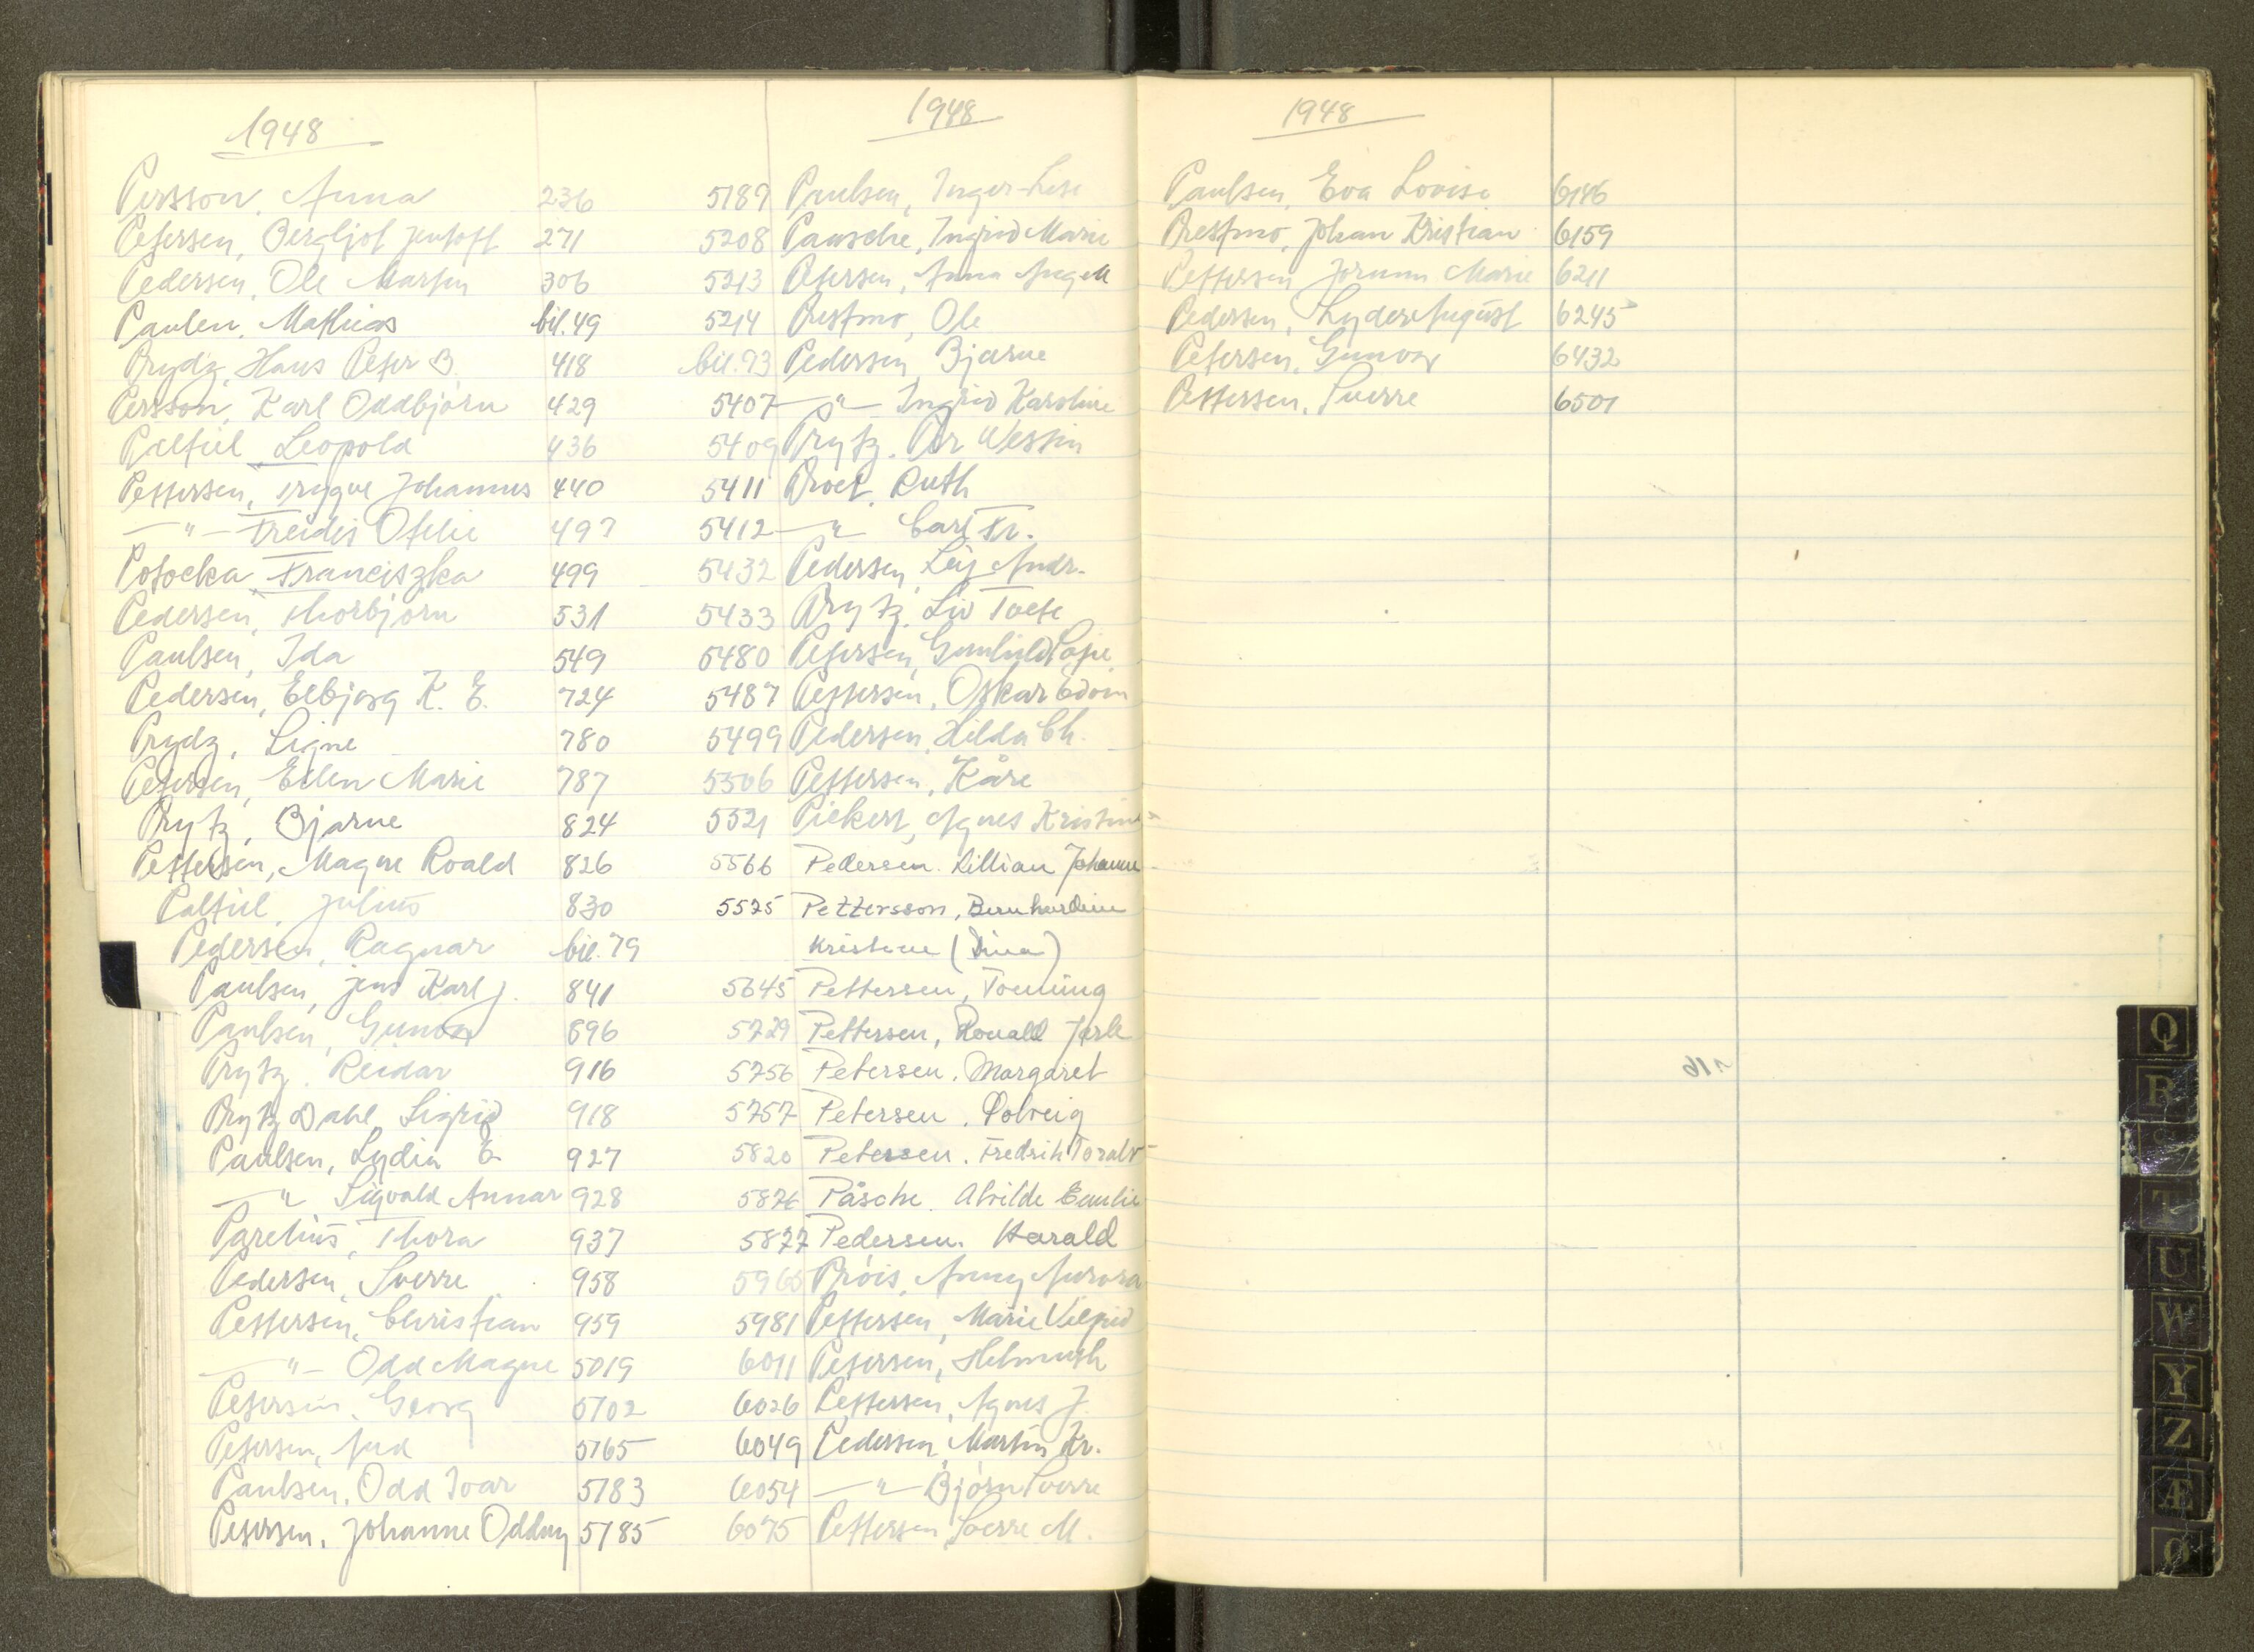 1948
Persson, Anna 236
Petersen, Bergljot Jentoft 271
Pedersen, Ole Marten 306
Paulen, Mathias bil. 49
Prydz, Hans Peter B. 418
Persson, Karl Oddbjørn 429
Paltiel Leopold 436
Pettersen, Trygve Johannes 440
—"— Freidis Otelie 497
Potocka Franciszka 499
Pedersen, Thorbjørn 531
Paulsen, Ida 549
Pedersen, Elbjørg K. E. 724
Prydz, Signe 780
Petersen, Ellen Marie 787
Prytz, Bjarne 824
Pettersen, Magne Roald 826
Paltiel, Julius 830
Pedersen, Ragnar bil. 79
Paulsen, Jens Karl J. 841
Paulsen, Gunvor 896
Prytz, Reidar 916
Prytz Dahl, Sigrid 918
Paulsen, Lydia E. 927
—"— Sigvald Annar 928
Parelius, Thora 937
Pedersen, Sverre 958
Pettersen, Christian 959
—"— Odd Magne 5019
Petersen, Georg 5702
Petersen, 5765
Paulsen, Odd Ivar 5783
Petersen, Johanne Oddny 5785
1948
5189 Paulsen, Inger-Lise
5208 Pausche, Ingrid Marie
5213 Petersen, Anna
5214 Prestmo, Ole
bil. 93 Pedersen, Bjarne
5407 —"— Ingrid Karoline
5409 Prytz, Per Wessin
5411 Proet, Ruth
5412 —"— Carl Fr.
5432 Pedersen, Leif Andr.
5433 Prytz, Liv Tvete
5480 Petersen, Gunhild
5487 Pettersen, Oskar Edvin
5499 Pedersen, Hilda Ch.
5506 Pettersen, Kåre
5521 Piekert, Agnes Kristine
5566 Pedersen. Lillian Johanne
5575 Pettersson, Bernhardine
Kristine (Dina)
5645 Pettersen, Tonning
5729 Pettersen, Ronald Jarle
5756 Petersen. Margaret
5757 Petersen. Solveig
5820 Petersen. Fredrik Toralv
5876 Påsche. Alvilde Emilie
5877 Pedersen. Harald
5965 Prøis, Anny Aurora
5981 Pettersen, Marie
6011 Petersen, Helmuth
6026 Pettersen, Agnes J.
6049 Pedersen, Martin Kr.
6054 —"— Bjørn Sverre
6075 Pettersen, Sverre M.
1948
Paulsen, Eva Lovise 6146
Prestmo, Johan Kristian 6159
Pettersen Jorunn Marie 6211
Pedersen, Lyder August 6245
Petersen, Gunvor 6432
Pettersen, Sverre 6501
Q
R
T
U
W
Y
Z
Æ
Ø